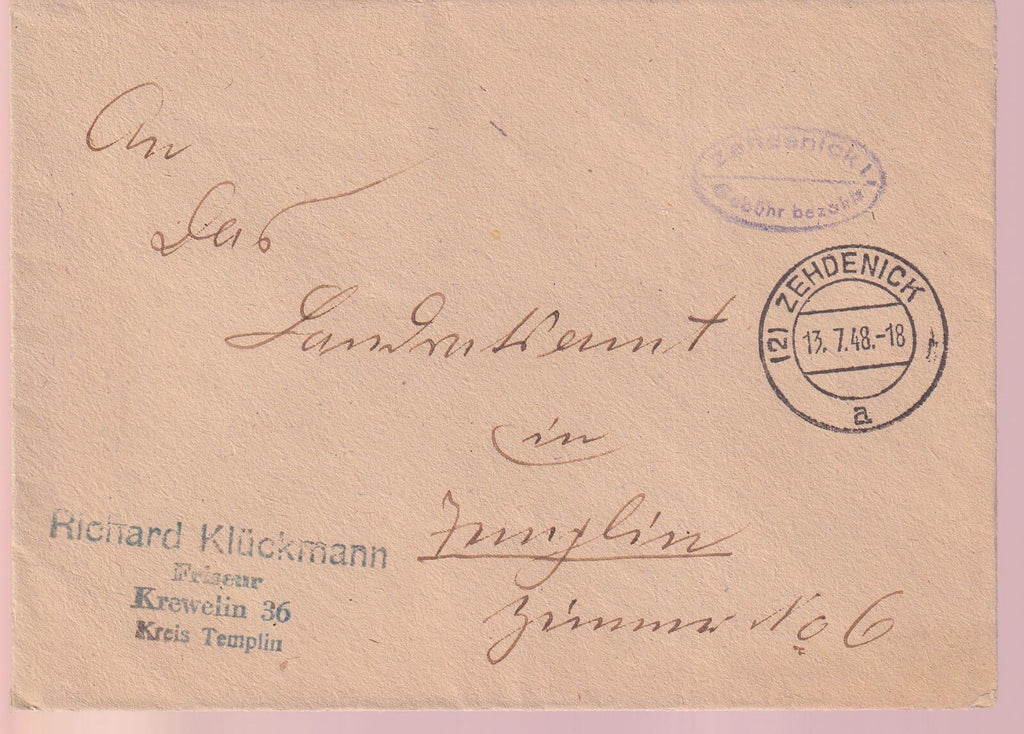 An
Das
Landratsamt
in
Templin
Zimmer No 6
Zehdenick
Gebühr bezahlt
(2) ZEHDENICK
13. 7.48.-18
a
Richard Klückmann
Friseur
Krewelin 36
Kreis Templin